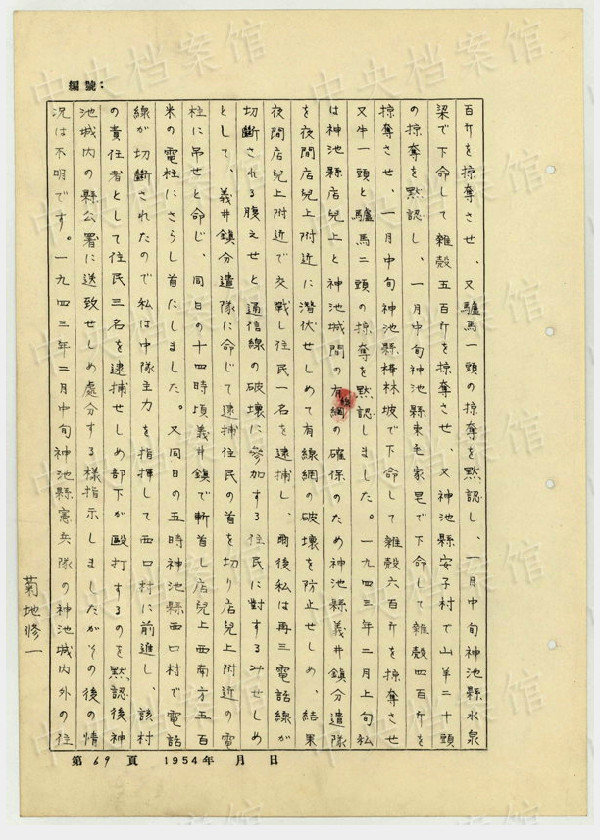 編號：
百斤を掠奪させ、又驢馬一頭の掠奪を黙認し、一月中旬神池縣水泉
梁で下命して雜殼五百斤を掠奪させ、又神池縣安子村で山羊二十頭
の掠奪を黙認し、一月中旬神池縣東毛家皂で下命して雜殼四百斤を
掠奪させ、一月中旬神池縣梅林坡で下命して雜殼六百斤を掠奪させ
又牛一頭と驢馬二頭の掠奪を黙認しました。一九四三年二月上旬私
は神池縣店兒上と神池城間の有線網の確保のため神池縣義井鎮分遣隊
を夜間店兒上附近に潛伏せしめて有線網の破壞を防止せしめ、結果
夜間店兒上附近で交戰し住民一名を逮捕し、爾後私は再三電話線が
切斷される腹えせと通信線の破壞に參加する住民に對するみせしめ
として、義井鎮分遣隊に命じて逮捕住民の首を切り店兒上附近の電
柱に吊せと命じ、同日の十四時頃義井鎮で斬首し店兒上西南方五百
米の電柱にさらし首たしました。又同日の五時神池縣西口村で電話
線が切斷されたので私は中隊主力を指揮して西口村に前進し、該村
の責任者として住民三名を逮捕せしめ部下が毆打するのを黙認後神
池城内の縣公署に送致せしめ処分する樣指示しましたがその後の情
況は不明です。一九四三年二月中旬神池縣憲兵隊の神池城内外の往
菊地修一
第69頁 1954年 月 日
中央档案馆